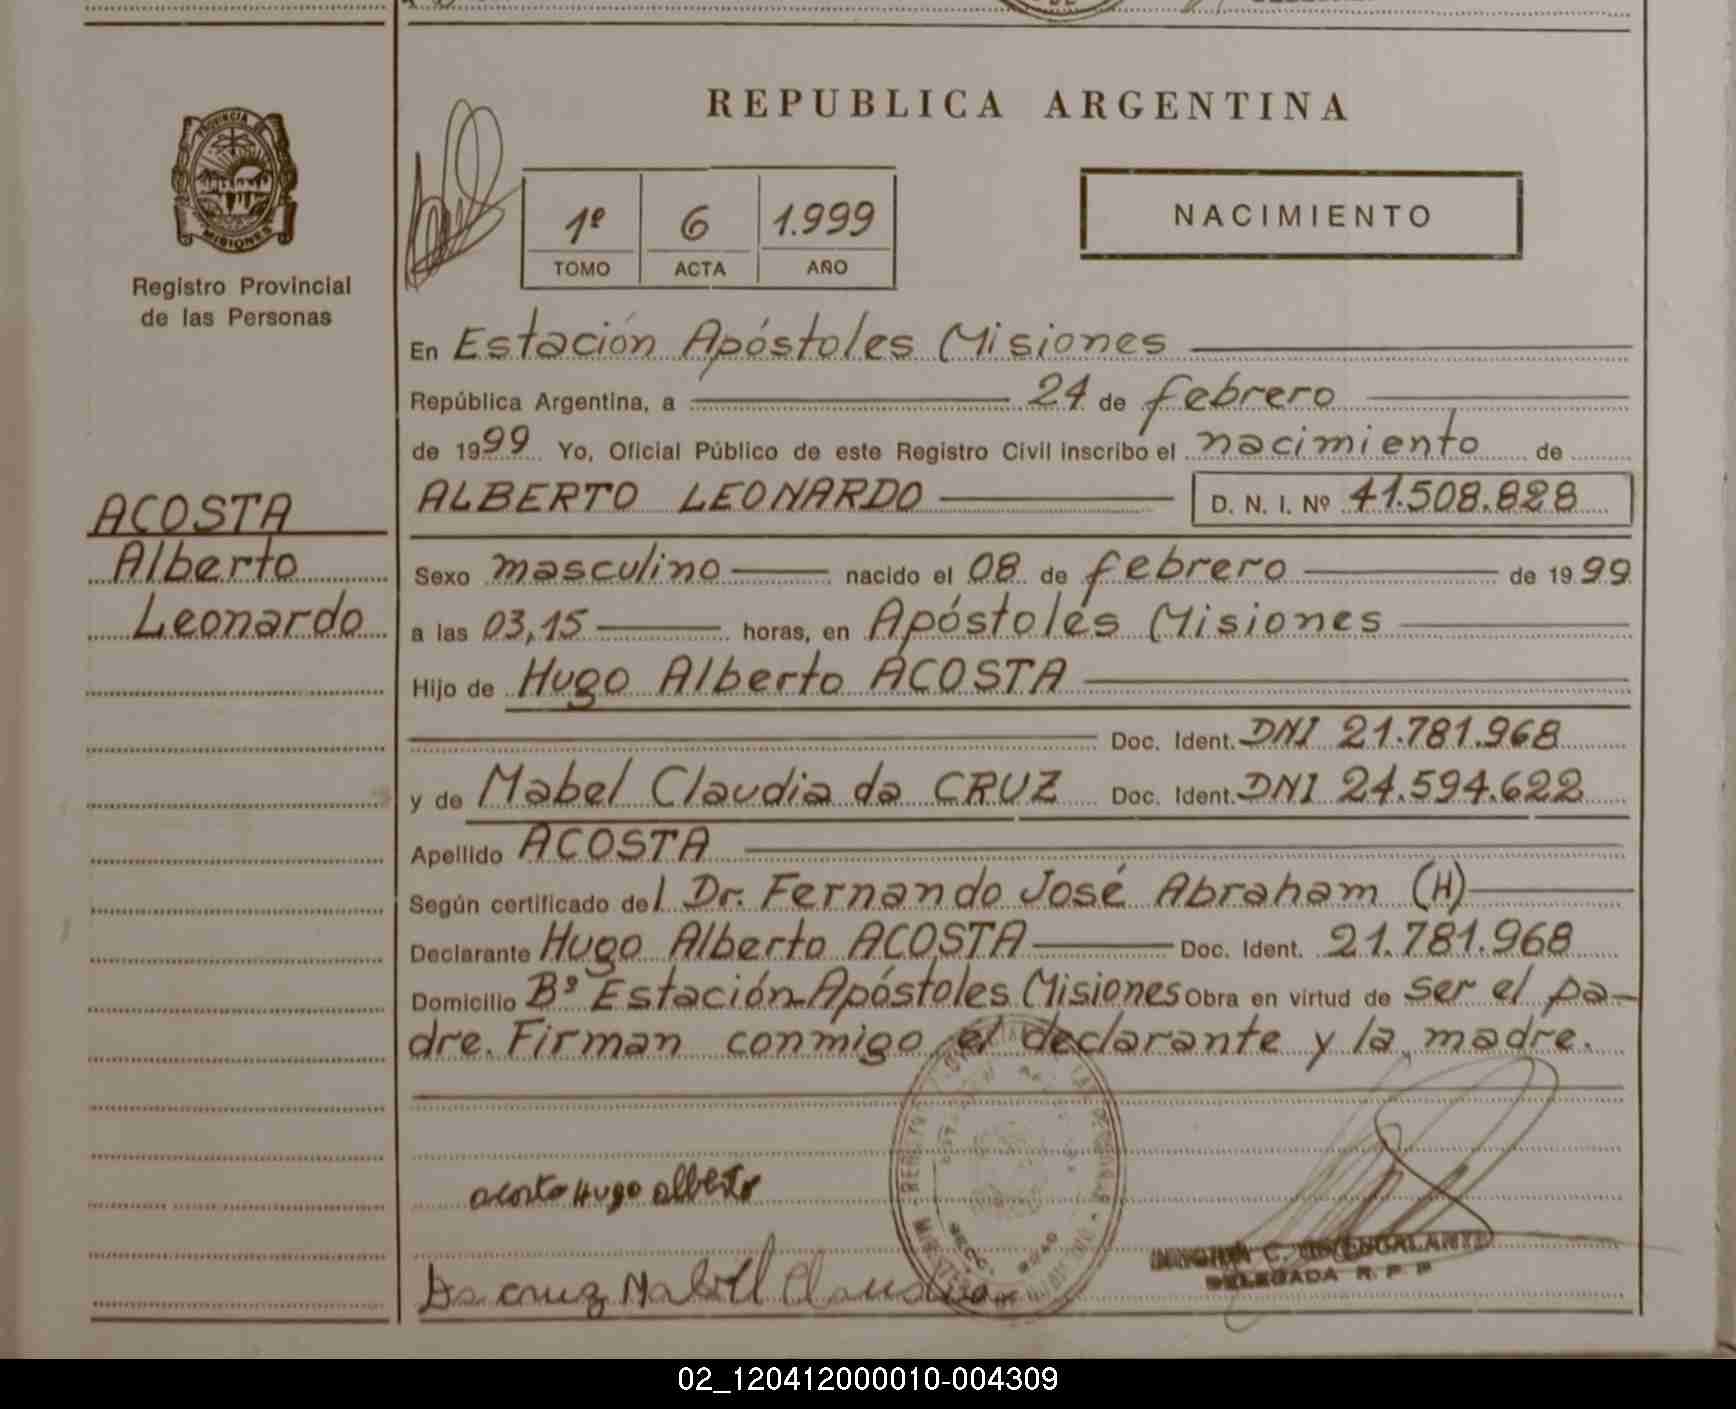 REPUBLICA ARGENTINA
PROVINCIA DE
MISIONES
Registro Provincial
de las Personas
1º 6 1.999
TOMO ACTA AÑO
NACIMIENTO
En Estación Apóstoles Misiones
República Argentina, a 24 de febrero
de 1999 Yo, Oficial Público de este Registro Civil inscribo el nacimiento de
ALBERTO LEONARDO D. N. I. Nº 41.508.828
ACOSTA
Alberto
Leonardo
Sexo masculino nacido el 08 de febrero de 1999
a las 03,15 horas, en Apóstoles Misiones
Hijo de Hugo Alberto ACOSTA
Doc. Ident. DNI 21.781.968
y de Mabel Claudia da CRUZ Doc. Ident. DNI 24.594.622
Apellido ACOSTA
Según certificado del Dr. Fernando José Abraham (H)
Declarante Hugo Alberto ACOSTA Doc. Ident. 21.781.968
Domicilio Bº Estación-Apóstoles Misiones Obra en virtud de ser el pa-
dre. Firman conmigo el declarante y la madre.
acosta Hugo alberto
Da cruz Mabell Claudia
DELEGADA R. P. P.
02_120412000010-004309